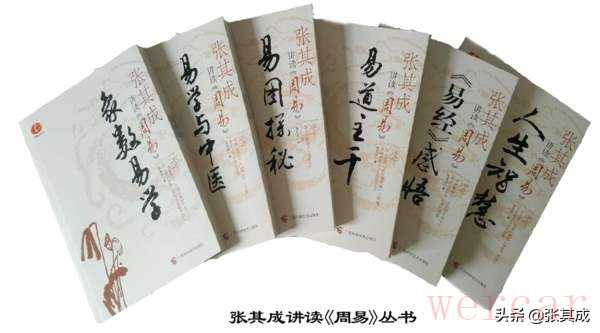 张其成
讲读《周易》
象数易学
张其成
讲读《周易》
易学与中医
张其成
讲读《周易》
易图探秘
张其成
讲读《周易》
易道主干
张其成
讲读《周易》
《易经》感悟
张其成
讲读《周易》
人生智慧
张其成讲读《周易》丛书
wercar
头条 @张其成